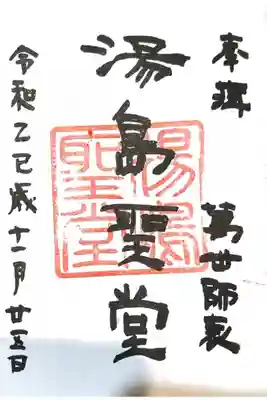 奉拝
萬世師表
湯島聖堂
湯島聖堂
令和乙巳歳十一月廿五日